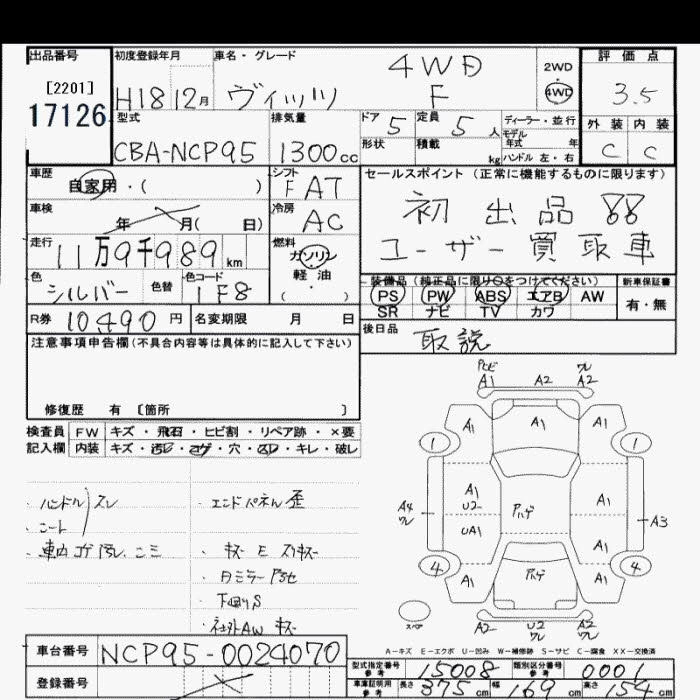 出品番号
[2201]
17126
初度登録年月
H18 12月
車名・グレード
ヴィッツ
4WD
F
2WD
4WD
評価点
3.5
外装 内装
C C
型式
CBA-NCP95
排気量
1300cc
ドア
5
定員
5人
形状
積載
kg
ディーラー・並行
モデル
年式 年
ハンドル 左・右
車歴
自家用・( )
シフト
FAT
車検
年 月( 日)
冷房
AC
走行
11万9千989km
燃料
ガソリン
軽油
( ・ )
色
シルバー
色替
色コード
1F8
R券 10490円
名変期限 月 日
セールスポイント(正常に機能するものに限ります)
初出品
ユーザー買取車
装備品(純正品に限り○をつけてください)
PS PW ABS エアB AW
SR ナビ TV カワ
新車保証書
有・無
後日品
取説
注意事項申告欄(不具合内容等は具体的に記入して下さい)
修復歴 有 [箇所 ]
検査員 FW キズ・飛石・ヒビ割・リペア跡・×要
記入欄 内装 キズ・汚レ・コゲ・穴・スレ・キレ・破レ
・ハンドル スレ
・シート
・車内コゲ汚レ
・エンドパネル歪
・下回りS
・社外AW キズ
A1 A2 A2
A1 A1 A1
1 1
A1 U2 A1
A4 ワレ UA1 A3
A1
4 4
A1 A1
A2 U2 ワレ A2 ワレ
スペア
A-キズ E-エクボ U-凹み W-補修跡 S-サビ C-腐食 XX-交換済
車台番号 NCP95-0024070
登録番号
型式指定番号 参考 15008 類別区分番号 参考 0001
車庫証明用 参考 長さ 375cm 幅 169cm 高さ 154cm